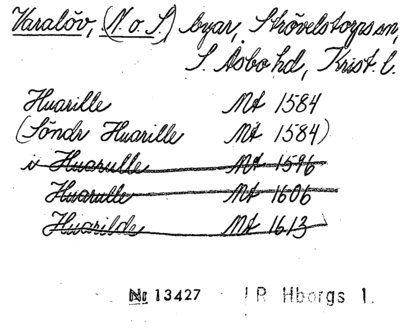 Varalöv, (N. o S.) byar, Strövelstorps sn,
S. Åsbo hd, Krist. l.
Huarille Mt 1584
(Söndr Huarille Mt 1584)
i Huarulle Mt 1596
Huarulle Mt 1606
Huarilde Mt 1613
Nr 13427 JR Hborgs l.